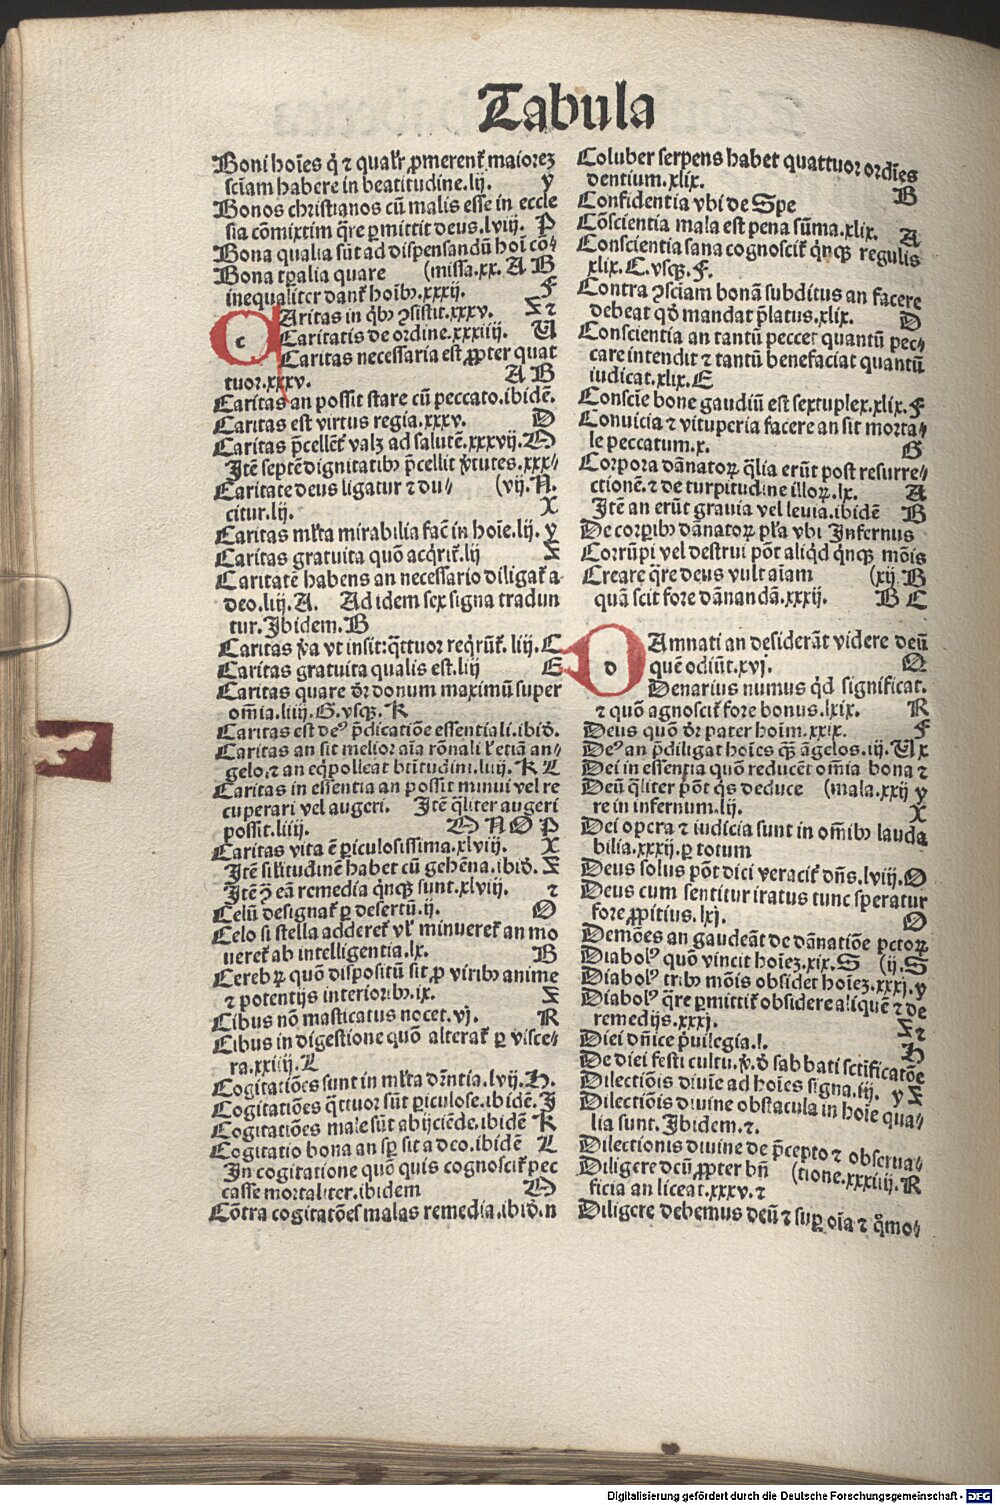 Tabula
Boni hoīes q̇ ⁊ qualr̄ ꝓmerent̄ maiorez
sciam habere in beatitudine.lij. y
Bonos christianos cū malis esse in eccle
sia cōmixtim q̄re ꝑmittit deus.lviij. P
Bona qualia sūt ad dispensandū hoī cō⸗
Bona tꝑalia quare (missa.xx. A B
inequaliter dant̄ hoībꝫ.xxxij. F
CAritas in q̇bꝫ ꝯsistit.xxxv. Z ⁊
c
Caritatis de ordine.xxxiiij. U
Caritas necessaria est ꝓpter quat
tuor.xxxv. A B
Caritas an possit stare cū peccato.ibidē.
Caritas est virtus regia.xxxv. D
Caritas p̄cellēt̄ valz ad salutē.xxxvij. M
Itē septē dignitatibꝫ p̄cellit v̇tutes.xxx⸗
Caritate deus ligatur ⁊ du⸗ (vij. N.
citur.lij. X
Caritas mlt̄a mirabilia fac̄ in hoīe.lij. y
Caritas gratuita quō acq̇rit̄.lij Z
Caritatē habens an necessario diligat̄ a
deo.liij. A. Ad idem sex signa tradun
tur. Ibidem. B
Caritas v̇a vt insit: q̄ttuor req̇rūt̄. liij. C
Caritas gratuita qualis est.liij E
Caritas quare dr̄ donum maximū super
om̄ia.liiij. G. vsqꝫ. K
Caritas est deꝰ p̄dicatiōe essentiali.ibid̄.
Caritas an sit melior aīa rōnali l̄ etiā an⸗
gelo, ⁊ an eq̇polleat btītudini.liiij. K L
Caritas in essentia an possit minui vel re
cuperari vel augeri. Itē q̄liter augeri
possit.liiij. M N O P
Caritas vita ē ꝑiculosissima.xlviij. X
Itē silitudinē habet cū gehēna.ibid̄. Z
Itē ꝯ eā remedia q̇nqꝫ sunt.xlviij. ⁊
Celū designat̄ ꝑ desertū.ij. O
Celo si stella adderet̄ vl̄ minueret̄ an mo
ueret̄ ab intelligentia.lx. B
Cerebꝝ quō dispositū sit ꝓ viribꝫ anime
⁊ potentijs interioribꝫ.ix. Z
Cibus nō masticatus nocet.vj. R
Cibus in digestione quō alterat̄ ꝑ visce⸗
ra.xxiiij. L
Cogitatiōes sunt in mlt̄a dr̄ntia.lvij. H.
Cogitatiōes q̄ttuor sūt ꝑiculose.ibidē. I
Cogitatiōes male sūt abijciēde.ibidē K
Cogitatio bona an sꝑ sit a deo.ibidē L
In cogitatione quō quis cognoscit̄ pec
casse mortaliter.ibidem M
Cōtra cogitatōes malas remedia.ibid̄. n
Coluber serpens habet quattuor ordīes
dentium.xlix. B
Confidentia vbi de Spe
Cōscientia mala est pena sūma.xlix. A
Conscientia sana cognoscit̄ q̇nqꝫ regulis
xlix. C. vsqꝫ. F.
Contra ꝯsciam bonā subditus an facere
debeat qd̄ mandat p̄latus.xlix. D
Conscientia an tantū peccet quantū pec⸗
care intendit ⁊ tantū benefaciat quantū
iudicat.xlix. E
Conscīe bone gaudiū est sextuplex.xlix. F
Conuicia ⁊ vituperia facere an sit morta⸗
le peccatum.x. G
Corpora dānatoꝝ q̄lia erūt post resurre⸗
ctionē. ⁊ de turpitudine illoꝝ.lx. A
Itē an erūt grauia vel leuia.ibidē B
De corꝑibꝫ dānatoꝝ pl̄a vbi Infernus
Corrūpi vel destrui pōt aliq̇d q̇nqꝫ mōis
Creare q̄re deus vult aīam (xij. B
quā scit fore dānandā.xxxij. B C
DAmnati an desiderāt videre deū
d
quē odiūt.xvj. Q
Denarius numus q̇d significat.
⁊ quō agnoscit̄ fore bonus.lxix. R
Deus quō dr̄ pater hoīm.xxix. F
Deꝰ an p̄diligat hoīes qꝫ āgelos.iij. U x
Dei in essentia quō reducēt om̄ia bona ⁊
Deū q̄liter pōt q̇s deduce (mala.xxij y
re in infernum.lij. X
Dei opera ⁊ iudicia sunt in om̄ibꝫ lauda
bilia.xxxij. ꝑ totum
Deus solus pōt dici veracit̄ dn̄s.lviij. O
Deus cum sentitur iratus tunc speratur
fore ꝓpitius.lxj. O
Demōes an gaudeāt de dānatiōe pctoꝝ
Diabolꝰ quō vincit hoīez.xix. S (ij. S
Diabolꝰ tribꝫ mōis obsidet hoīez.xxxj. y
Diabolꝰ q̄re ꝑmittit̄ obsidere aliquē ⁊ de
remedijs.xxxj. Z ⁊
Diei dn̄ice p̄uilegia.l. H
De diei festi cultu.v̇.d̄ sabbati sctīficatōe
Dilectiōis diuīe ad hoīes signa.iij. y Z
Dilectiōis diuine obstacula in hoīe qua⸗
lia sunt. Ibidem. ⁊.
Dilectionis diuine de p̄cepto ⁊ obserua⸗
Diligere deū ꝓpter bn̄ (tione.xxxiiij. R
ficia an liceat.xxxv. ⁊
Diligere debemus deū ⁊ suꝑ oīa ⁊ q̊mo⸗
Digitalisierung gefördert durch die Deutsche Forschungsgemeinschaft - DFG